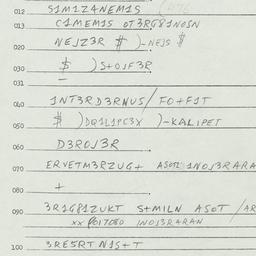 012 S1M1Z4NEM1S
013 C1MEM1S OT3RG81NOSN
020 NEJZ3R $ )-NEJS $
030 $ )S+OJF3R
031 —
040 1NT3RD3RNUS/FO+F1T
050 $ )DQ1L1PC3X )-KALIPET
060 D3ROJ3R
070 ERVETM3RZUG+ 1NOJ3RARA
080 +
090 3R1G81ZUKT S+MILN ASOT /AR
1NOJ3RARAN
100 3RE5RT N1S+T